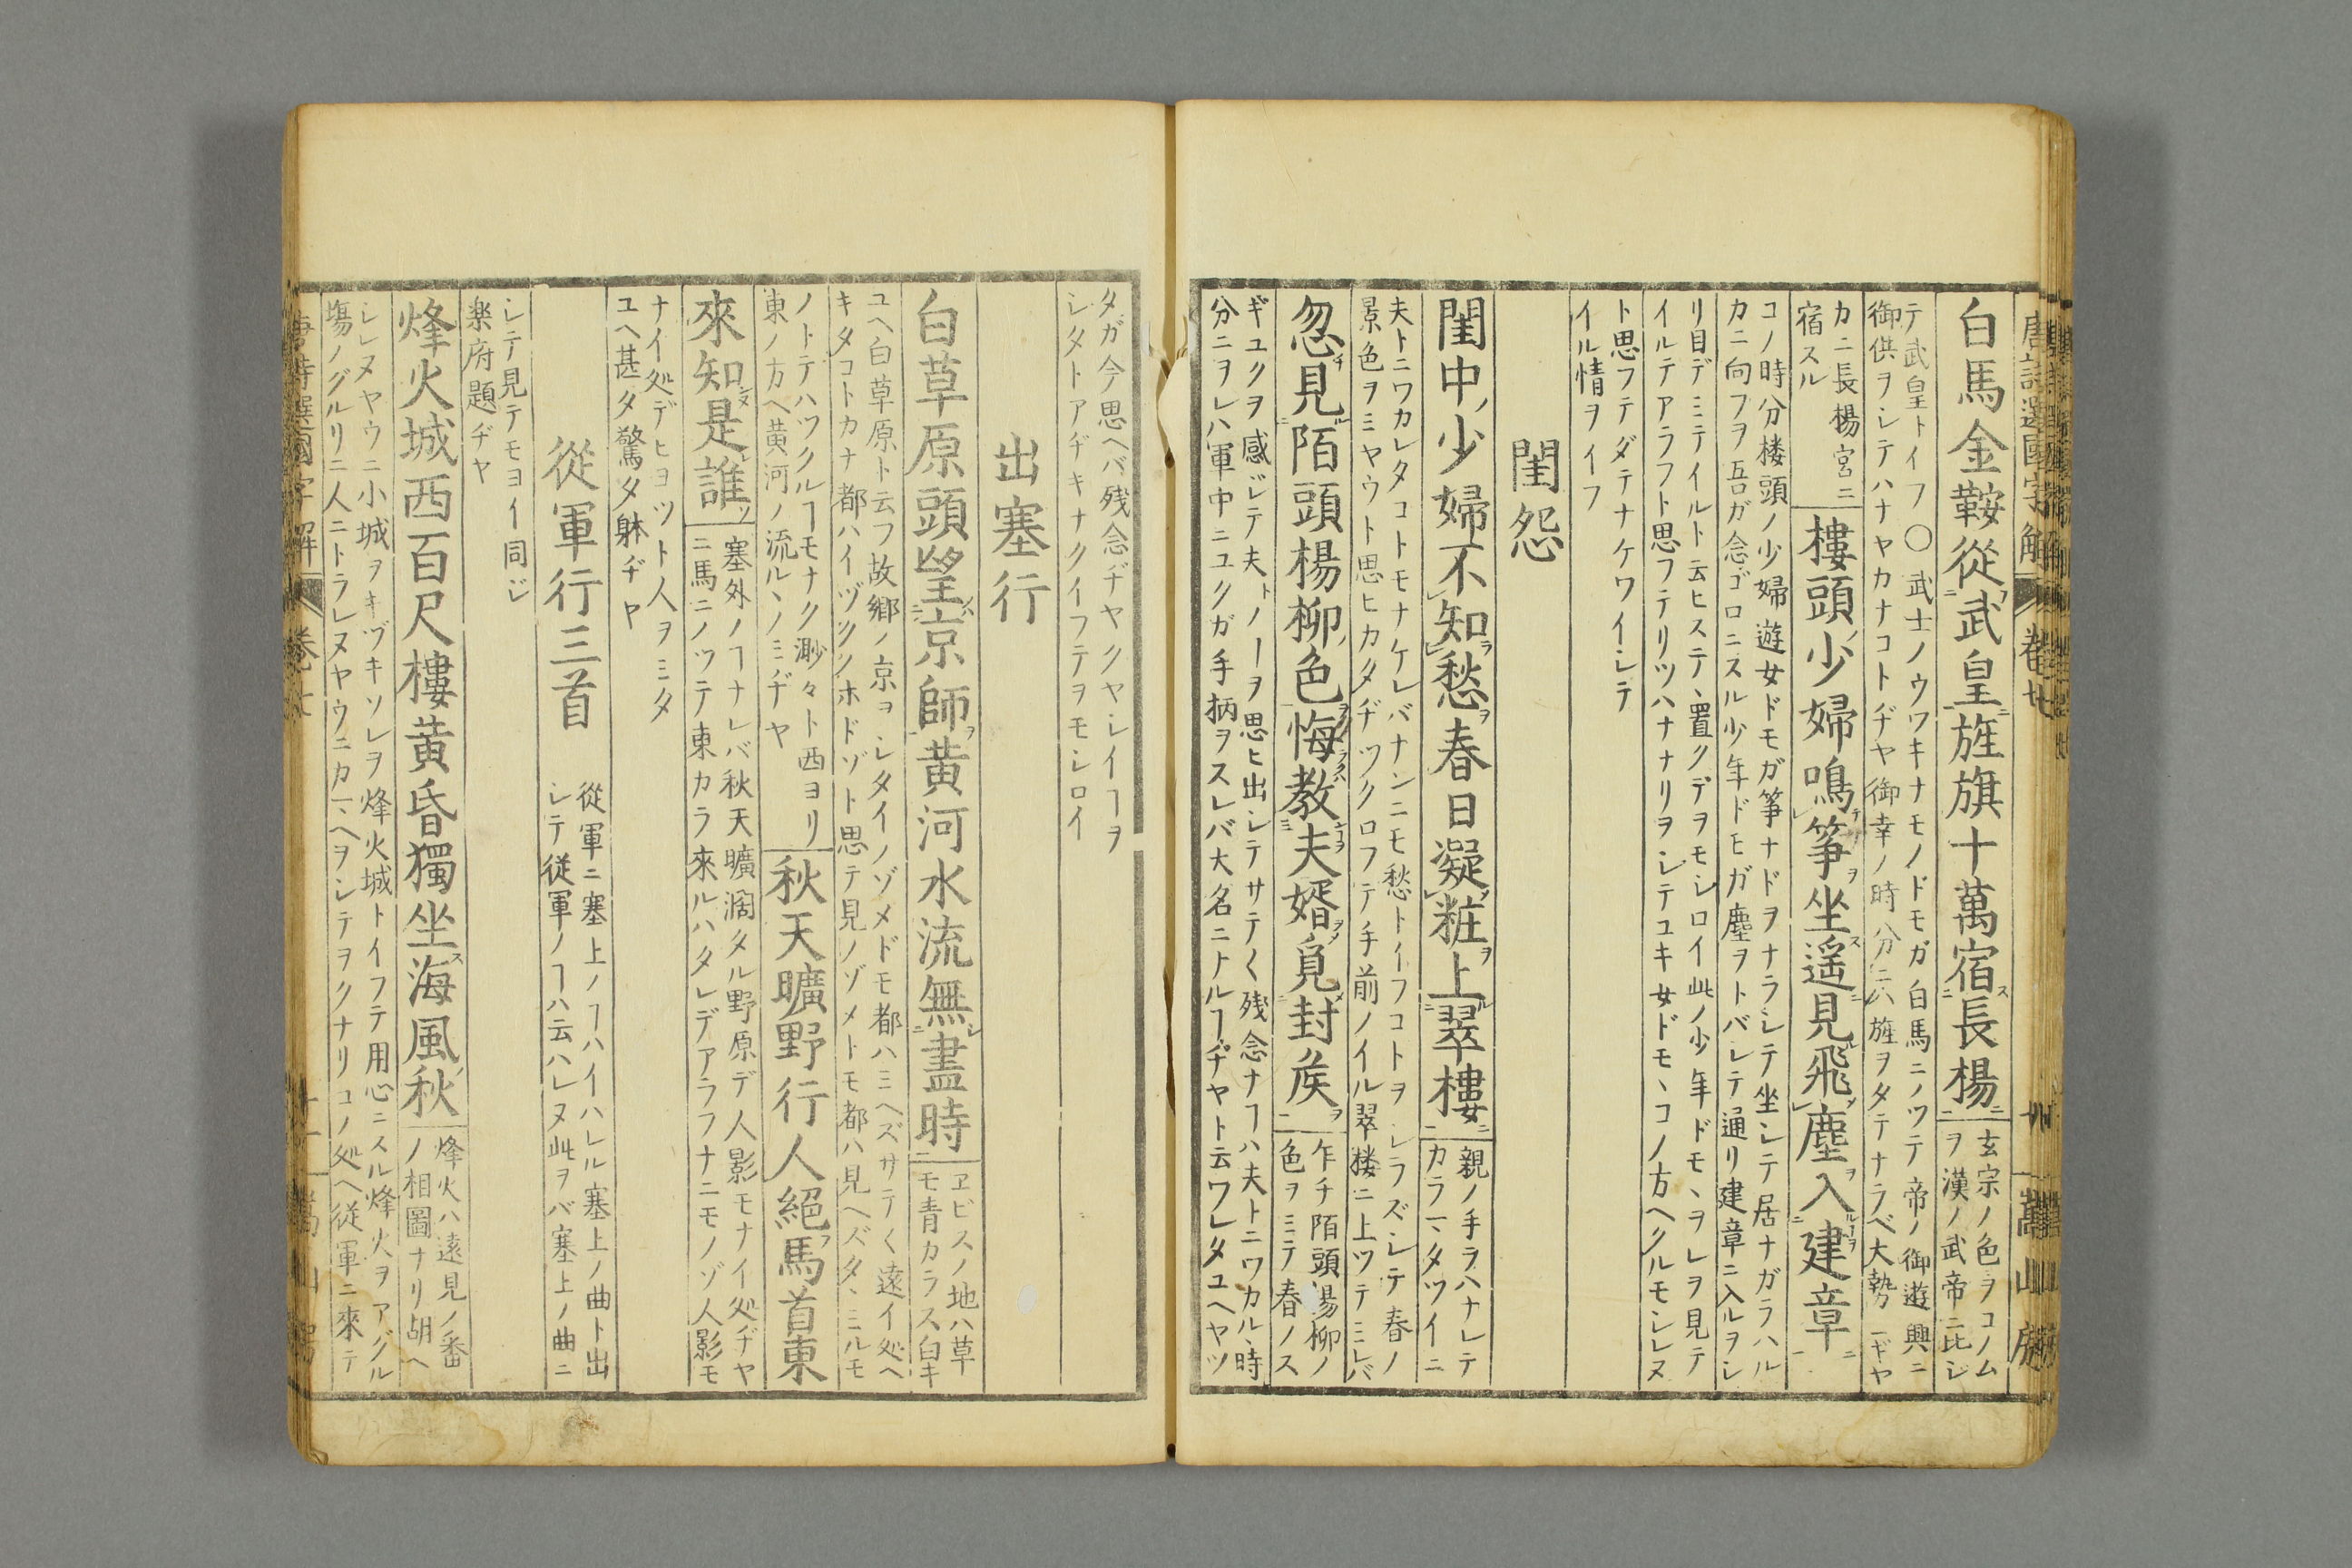 唐詩選國字解 卷七
白馬金鞍從武皇旌旗十萬宿長楊
玄宗ノ色ヲコノム
ヲ漢ノ武帝ニ比シ
テ武皇トイフ〇武士ノウワキナモノドモガ白馬ニノツテ帝ノ御遊興ニ
御供ヲシテハナヤカナコトヂヤ御幸ノ時分ニハ旌ヲタテナラベ大勢
カニ長楊宮ニ
宿スル
樓頭少婦鳴筝坐遥見飛塵入建章
コノ時分楼頭ノ少婦遊女ドモガ筝ナドヲナラシテ坐シテ居ナガラハル
カニ向フヲ吾ガ念ゴロニスル少年ドモガ塵ヲトバシテ通リ建章ニ入ルヲシ
リ目デミテイルト云ヒステ置クデヲモシロイ此ノ少年ドモヽヲレヲ見テ
イルテアラフト思フテリツハナナリヲシテユキ女ドモヽコノ方ヘクルモシレヌ
ト思フテダテナケワイシテ
イル情ヲイフ
閨怨
閨中少婦不知愁春日凝粧上翠樓
親ノ手ヲハナレテ
カラ一ヽタツイニ
夫トニワカレタコトモナケレバナンニモ愁トイフコトヲシラズシテ春ノ
景色ヲミヤウト思ヒカタヂツクロフテ手前ノイル翠楼ニ上ツテミレバ
忽見陌頭楊柳色悔教夫婿覓封矦
乍チ陌頭湯柳ノ
色ヲミテ春ノス
ギユクヲ感ジテ夫トノーヲ思ヒ出シテサテ〱残念ナヿハ夫トニワカルヽ時
分ニヲレハ軍中ニユクガ手柄ヲスレバ大名ニナルヿヂヤト云ワレタユヘヤツ
タガ今思ヘバ残念ヂヤクヤシイヿヲ
シタトアヂキナクイフテヲモシロイ
出塞行
白草原頭望京師黄河水流無盡時
ヱビスノ地ハ草
モ青カラス白キ
ユヘ白草原ト云フ故郷ノ京ヲシタイノゾメドモ都ハミヘズサテ〱遠イ処ヘ
キタコトカナ都ハイヅクノホドゾト思テ見ノゾメトモ都ハ見ヘズタヽミルモ
ノトテハツクルヿモナク渺々ト西ヨリ
東ノ方ヘ黄河ノ流ルヽノミヂヤ
秋天曠野行人絕馬首東
來知是誰
塞外ノヿナレバ秋天曠濶タル野原デ人影モナイ処ヂヤ
ニ馬ニノツテ東カラ來ルハタレデアラフナニモノゾ人影モ
ナイ処デヒヨツト人ヲミタ
ユヘ甚タ驚タ躰ヂヤ
從軍行三首
從軍ニ塞上ノヿハイハレル塞上ノ曲ト出
シテ從軍ノヿハ云ハレヌ此ヲバ塞上ノ曲ニ
シテ見テモヨイ同ジ
楽府題ヂヤ
烽火城西百尺樓黄昏獨坐海風秋
烽火ハ遠見ノ番
ノ相圖ナリ胡ヘ
シレヌヤウニ小城ヲキヅキソレヲ烽火城トイフテ用心ニスル烽火ヲアグル
塲ノグルリニ人ニトラレヌヤウニカヽヘヲシテヲクナリコノ処ヘ從軍ニ來テ
唐詩選國字解 卷七